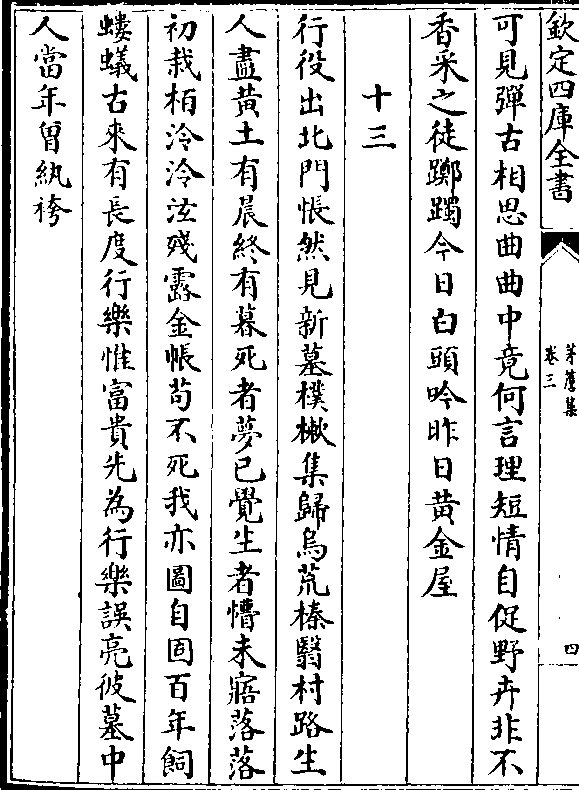 欽定四庫全書
茅簷集
卷三
四
可見彈古相思曲曲中竟何言理短情自促野卉非不
香采之徒躑躅今日白頭吟昨日黄金屋
十三
行役出北門悵然見新墓樸樕集歸烏荒榛翳村路生
人盡黄土有晨終有暮死者夢已覺生者懵未寤落落
初栽栢泠泠泫殘露金帳苟不死我亦圖自固百年飼
螻蟻古來有長度行樂惟富貴先為行樂誤亮彼墓中
人當年曾紈袴